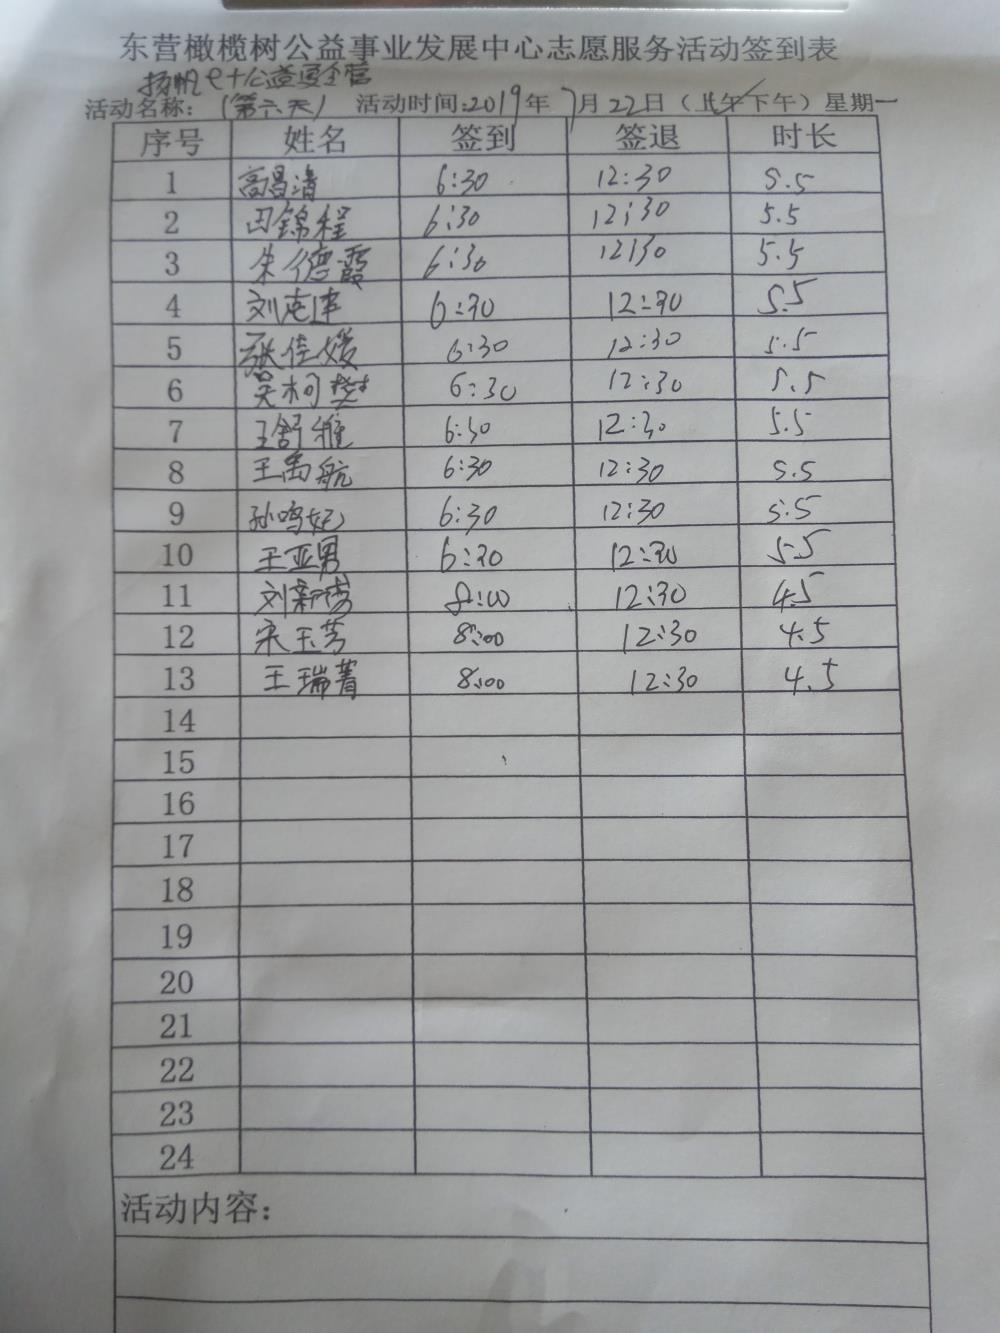 东营橄榄树公益事业发展中心志愿服务活动签到表
扬帆e+公益夏令营
活动名称：（第六天） 活动时间：2019年7月22日（上午/下午）星期一
序号 姓名 签到 签退 时长
1 高昌清 6:30 12:30 5.5
2 田锦程 6:30 12:30 5.5
3 朱德霞 6:30 12:30 5.5
4 刘志建 6:30 12:30 5.5
5 张佳媛 6:30 12:30 5.5
6 吴柯樊 6:30 12:30 5.5
7 王舒雅 6:30 12:30 5.5
8 王禹航 6:30 12:30 5.5
9 孙鸣妃 6:30 12:30 5.5
10 王亚男 6:30 12:30 5.5
11 刘新秀 8:00 12:30 4.5
12 宋玉芳 8:00 12:30 4.5
13 王瑞菁 8:00 12:30 4.5
14
15
16
17
18
19
20
21
22
23
24
活动内容：